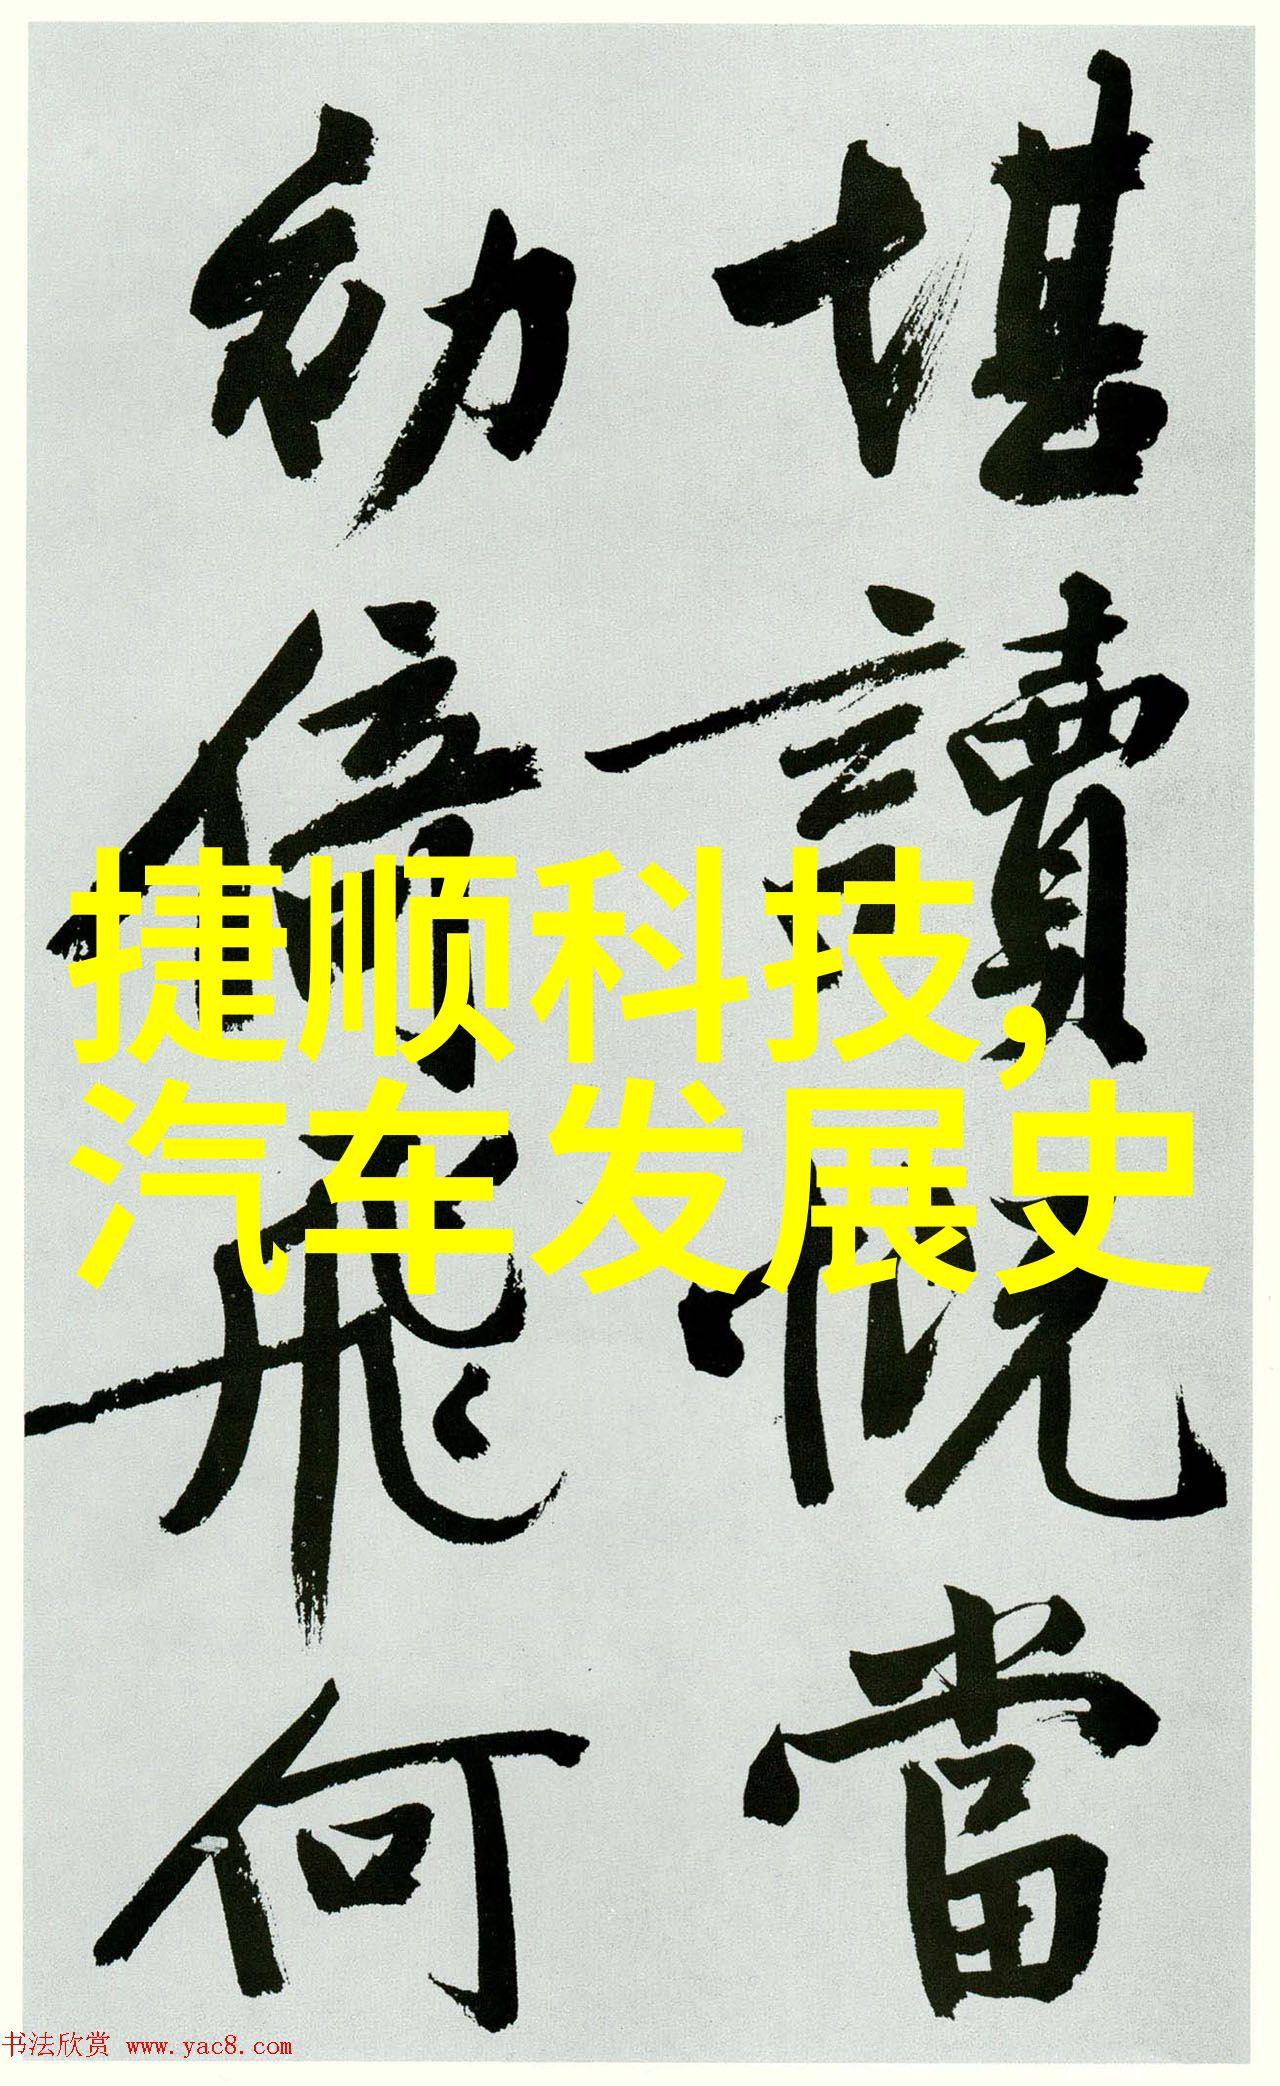 堪讀慨當
幼倍飛何
捷顺科技,
汽车发展史
书法欣赏 www.yac8.com